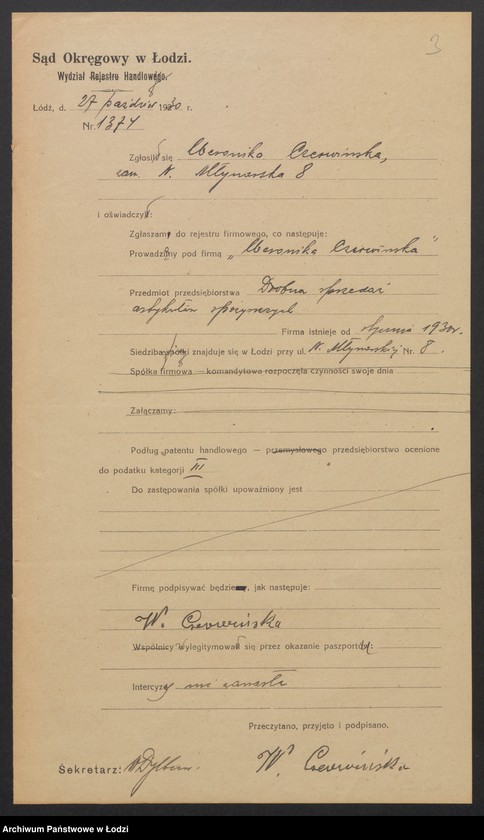 3
Sąd Okręgowy w Łodzi.
Wydział Rejestru Handlowego.
Łódź, d. 27 paździer 1930 r.
Nr. 1374
Zgłosił się Weronika Czerwińska,
zam. N. Młynarska 8
i oświadczył:
Zgłaszam do rejestru firmowego, co następuje:
Prowadzimy pod firmą „Weronika Czerwińska"
Przedmiot przedsiębiorstwa Drobna sprzedaż
artykułów spożywczych
Firma istnieje od stycznia 1930 r.
Siedziba spółki znajduje się w Łodzi przy ul. N. Młynarskiej Nr. 8.
Spółka firmowa — komandytowa rozpoczęła czynności swoje dnia
Załączamy:
Podług patentu handlowego — przemysłowego przedsiębiorstwo ocenione
do podatku kategorji III
Do zastępowania spółki upoważniony jest
Firmę podpisywać będzie, jak następuje:
W. Czerwińska
Wspólnicy wylegitymowali się przez okazanie paszportów:
Intercyzy nie zawarła
Przeczytano, przyjęto i podpisano.
Sekretarz:
W. Czerwińska
Archiwum Państwowe w Łodzi